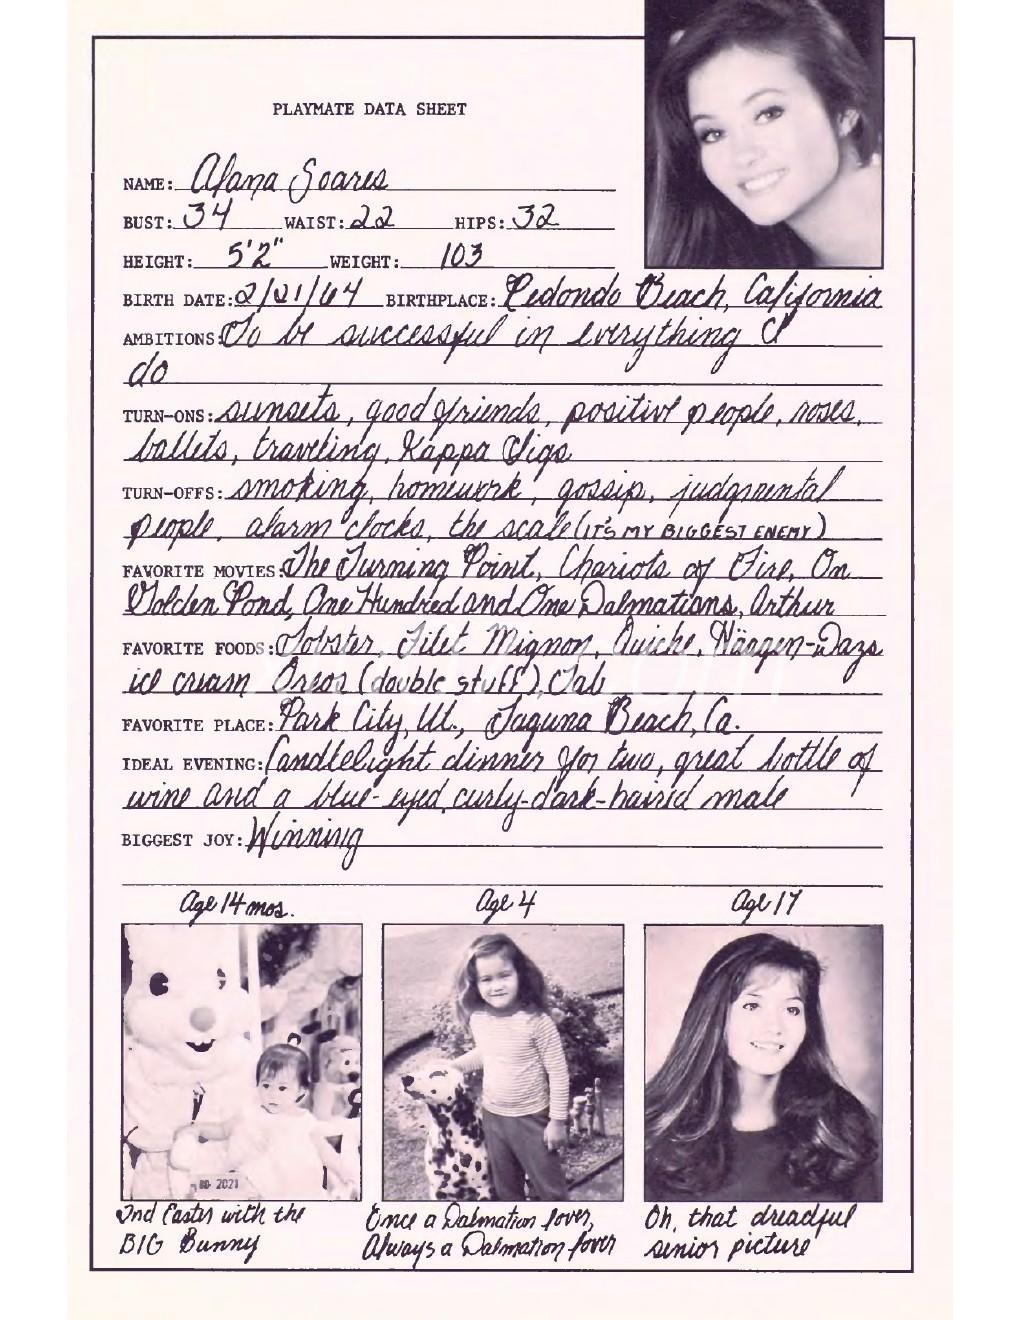 PLAYMATE DATA SHEET
NAME: Alana Soares
BUST: 34 WAIST: 22 HIPS: 32
HEIGHT: 5'2" WEIGHT: 103
BIRTH DATE: 2/21/64 BIRTHPLACE: Redondo Beach, California
AMBITIONS: To be successful in everything I
do
TURN-ONS: sunsets, good friends, positive people, roses,
ballets, traveling, Kappa Sigs
TURN-OFFS: smoking, homework, gossip, judgmental
people, alarm clocks, the scale (IT'S MY BIGGEST ENEMY)
FAVORITE MOVIES: The Turning Point, Chariots of Fire, On
Golden Pond, One Hundred and One Dalmations, Arthur
FAVORITE FOODS: Lobster, Filet Mignon, Quiche, Häagen-Dazs
ice cream Oreos (double stuff), Tab
FAVORITE PLACE: Park City, Ut., Laguna Beach, Ca.
IDEAL EVENING: Candlelight dinner for two, great bottle of
wine and a blue-eyed, curly-dark-haired male
BIGGEST JOY: Winning
Age 14 mos. Age 4 Age 17
2nd Easter with the
BIG Bunny
Once a Dalmation lover,
Always a Dalmation lover
Oh, that dreadful
senior picture